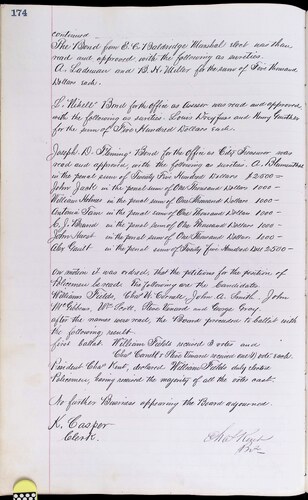 174
continued
The Bond from E. C. Baldridge Marshal elect was then
read and approved with the following as sureties.
A. Ladensen and B. H. Miller for the sum of Five thousand
Dollars each.
L. Bond for the office as Assessor was read and approved,
with the following as sureties: Louis Dreyfuss and Henry
for the sum of Five Hundred Dollars each.
Joseph D. Fleming Bond for the office as City Treasurer was
read and approved, with the following as sureties. A. Blumenthal
in the penal sum of Twenty Five Hundred Dollars $2500=
John Janh in the penal sum of One Thousand Dollars 1000-
William Holmes in the penal sum of One Thousand Dollars 1000-
Antonio in the penal sum of One Thousand Dollars 1000-
C. J. in the penal sum of One Thousand Dollars 1000-
John in the penal sum of One Thousand Dollars 1000-
Alex Gault in the penal sum of Twenty Five Hundred Doll 2500-
On motion it was ordered, that the petitions for the position of
Policemen be read. The following are the Candidates
William Fields, Chas W. Covall, John A. Smith, John
McGibbons, Wm. and George Gray.
after the names was read, the Board proceeded to ballot with
the following result
first ballot. William Fields received 3 votes and
Chas received each one vote.
President Chas Kent, declared William Fields duly elected
Policeman, having received the majority of all the votes cast.
No further Business appearing the Board adjourned.
K. Casper
Clerk.
Chas Kent